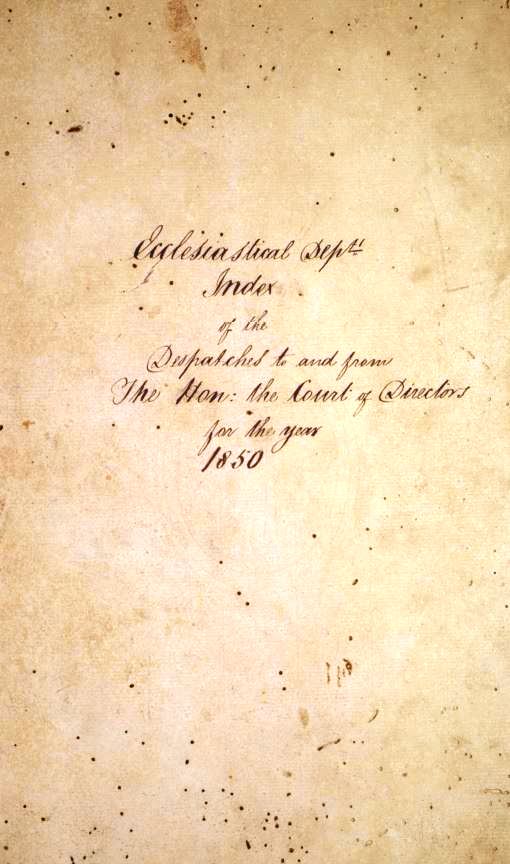 Ecclesiastical Deptt
Index
of the
Despatches to and from
The Hon: the Court of Directors
for the year
1850